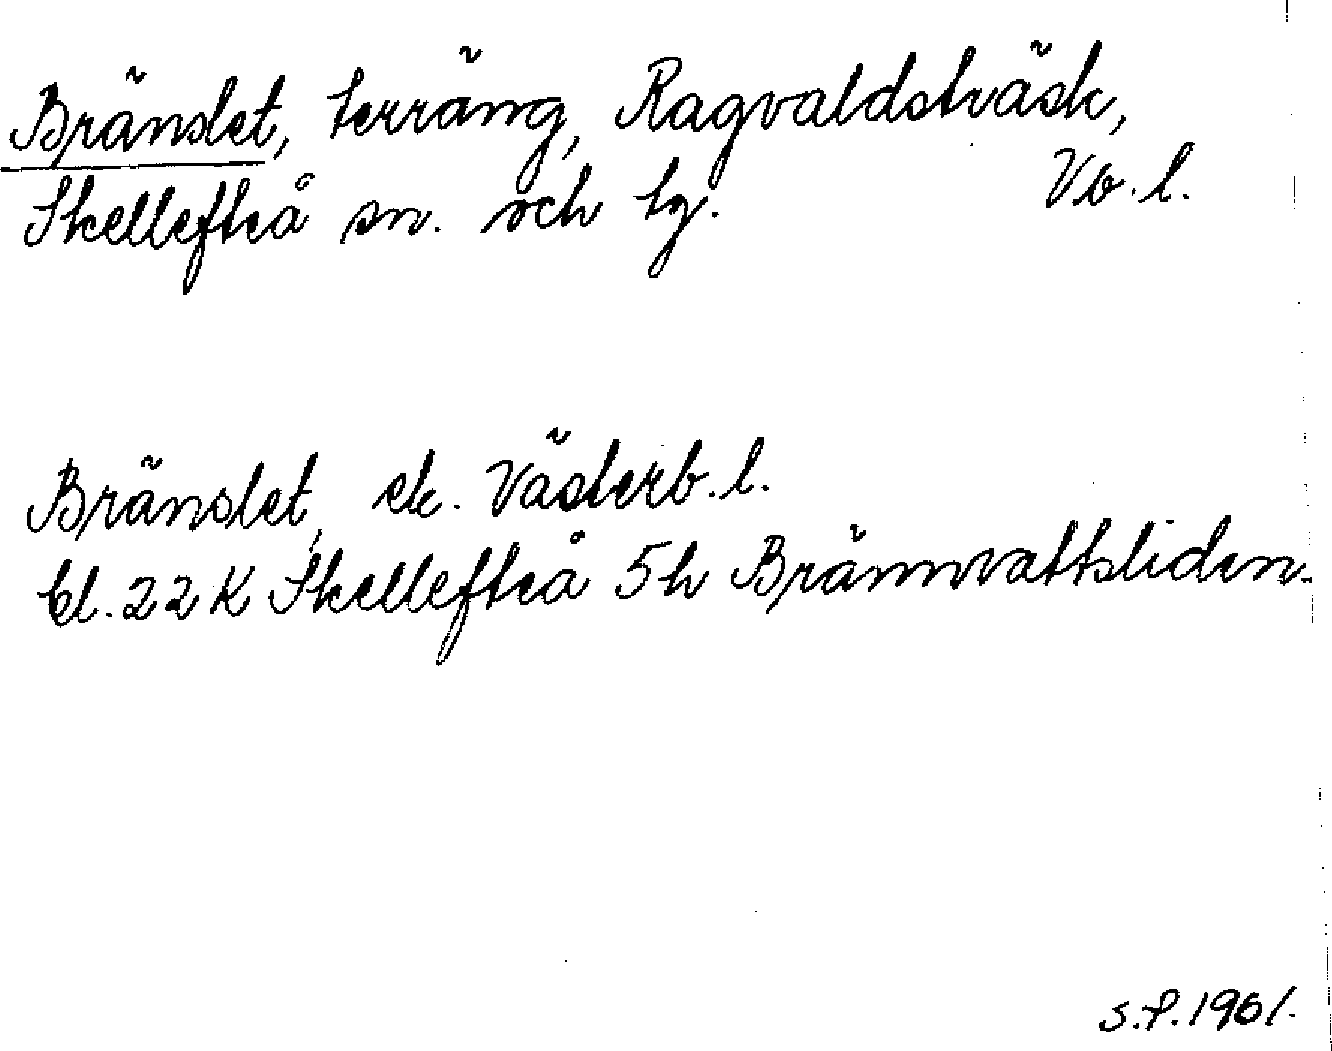 Bränslet, terräng, Ragvaldsträsk,
Skellefteå sn. och tg. Vb. l.
Bränslet, ek. Västerb. l.
bl. 22 K Skellefteå 5h Brännvattsliden.
S.P. 1961.